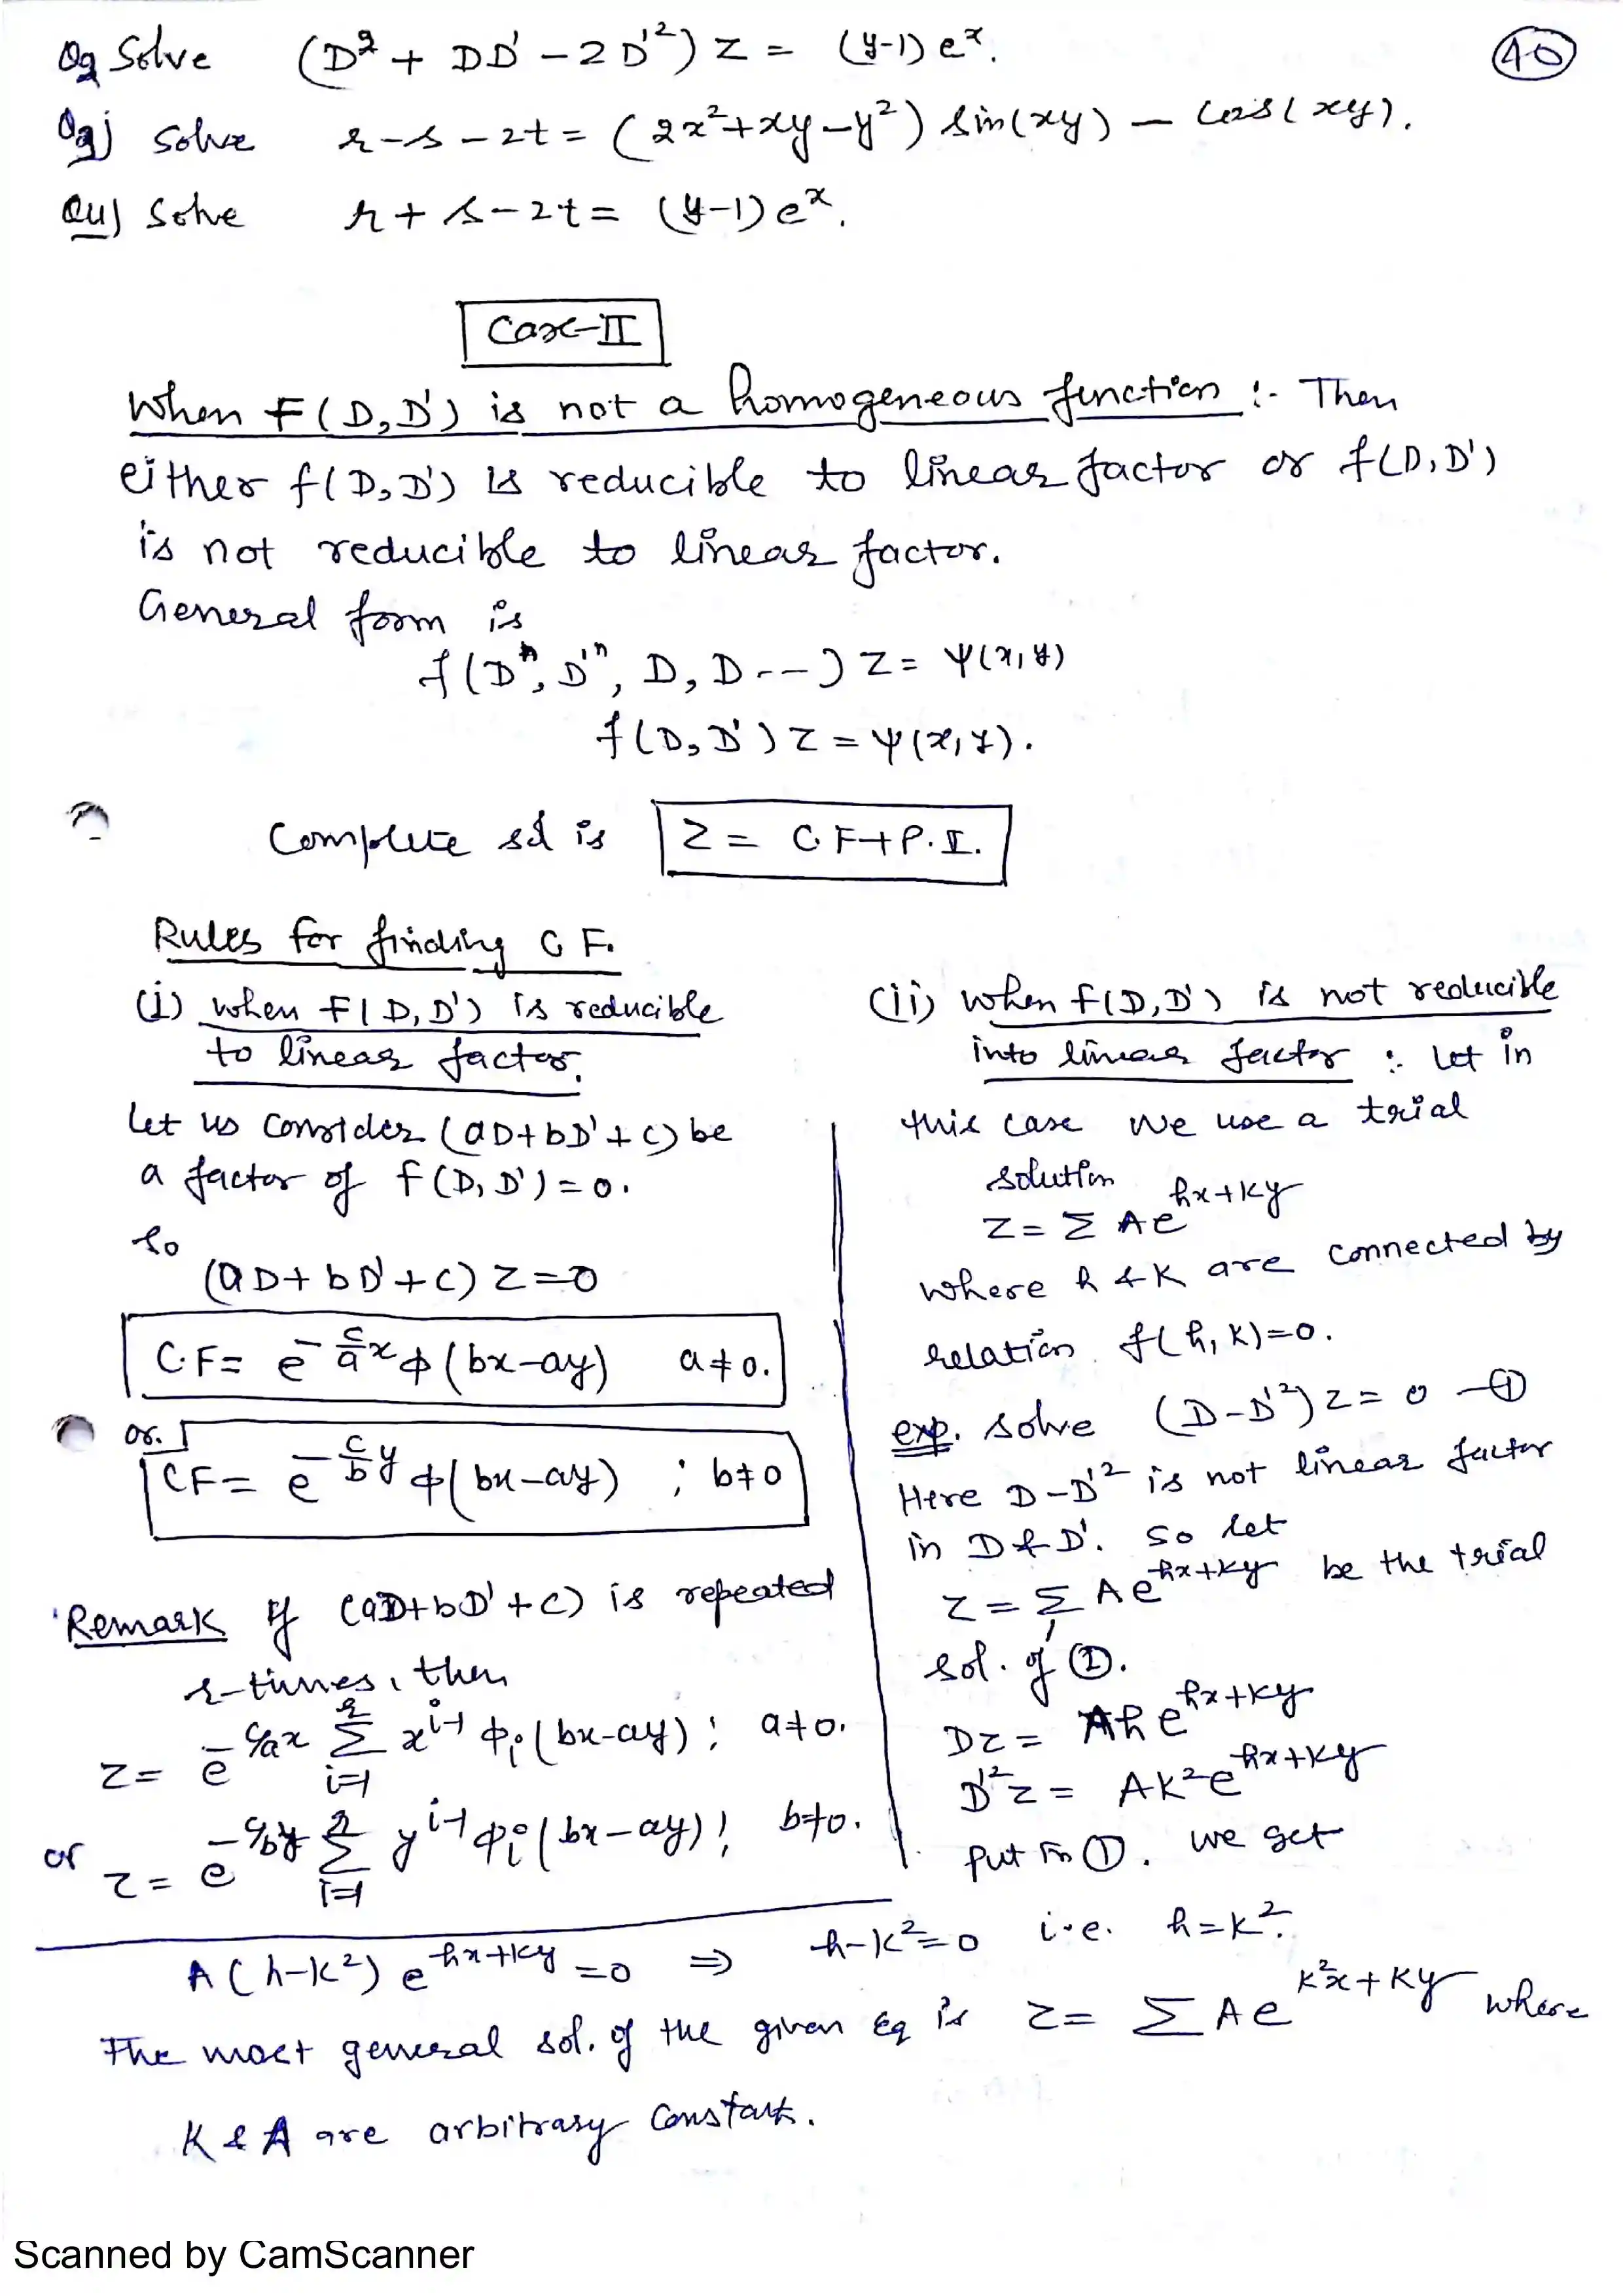 Q2 Solve (D² + DD' - 2D'²) z = (y-1) eˣ.
40
Q3) Solve r-s-2t = (2x²+xy-y²) sin(xy) - cos(xy).
Q4) Solve r+s-2t = (y-1) eˣ.
Case-II
When F(D,D') is not a homogeneous function :- Then
either f(D,D') is reducible to linear factor or f(D,D')
is not reducible to linear factor.
General form is
f(Dⁿ, D'ⁿ, D, D --) z = ψ(x,y)
f(D,D') z = ψ(x,y).
Complete sol is z = C.F+P.I.
Rules for finding C F.
(i) when F(D,D') is reducible
to linear factor.
Let us consider (aD+bD'+c) be
a factor of f(D,D')=0.
So
(aD+bD'+c) z=0
C.F= e^{-c/a x} φ(bx-ay) a≠0.
or.
CF= e^{-c/b y} φ(bx-ay) ; b≠0
Remark If (aD+bD'+c) is repeated
r-times, then
z= e^{-c/a x} Σ_{i=1}^{r} x^{i-1} φᵢ(bx-ay) ; a≠0.
or z= e^{-c/b y} Σ_{i=1}^{r} y^{i-1} φᵢ(bx-ay) ; b≠0.
(ii) when f(D,D') is not reducible
into linear factor :- Let in
this case we use a trial
solution
z= Σ Ae^{hx+ky}
where h & k are connected by
relation f(h,k)=0.
exp. Solve (D-D'²) z = 0 -①
Here D-D'² is not linear factor
in D & D'. So let
z = Σ Ae^{hx+ky} be the trial
sol. of ①.
Dz = Ah e^{hx+ky}
D'²z = Ak² e^{hx+ky}
Put in ①. we get
A(h-k²) e^{hx+ky} =0 ⇒ h-k²=0 i.e. h=k².
The most general sol. of the given Eq is z= Σ Ae^{k²x+ky} where
K & A are arbitrary constants.
Scanned by CamScanner